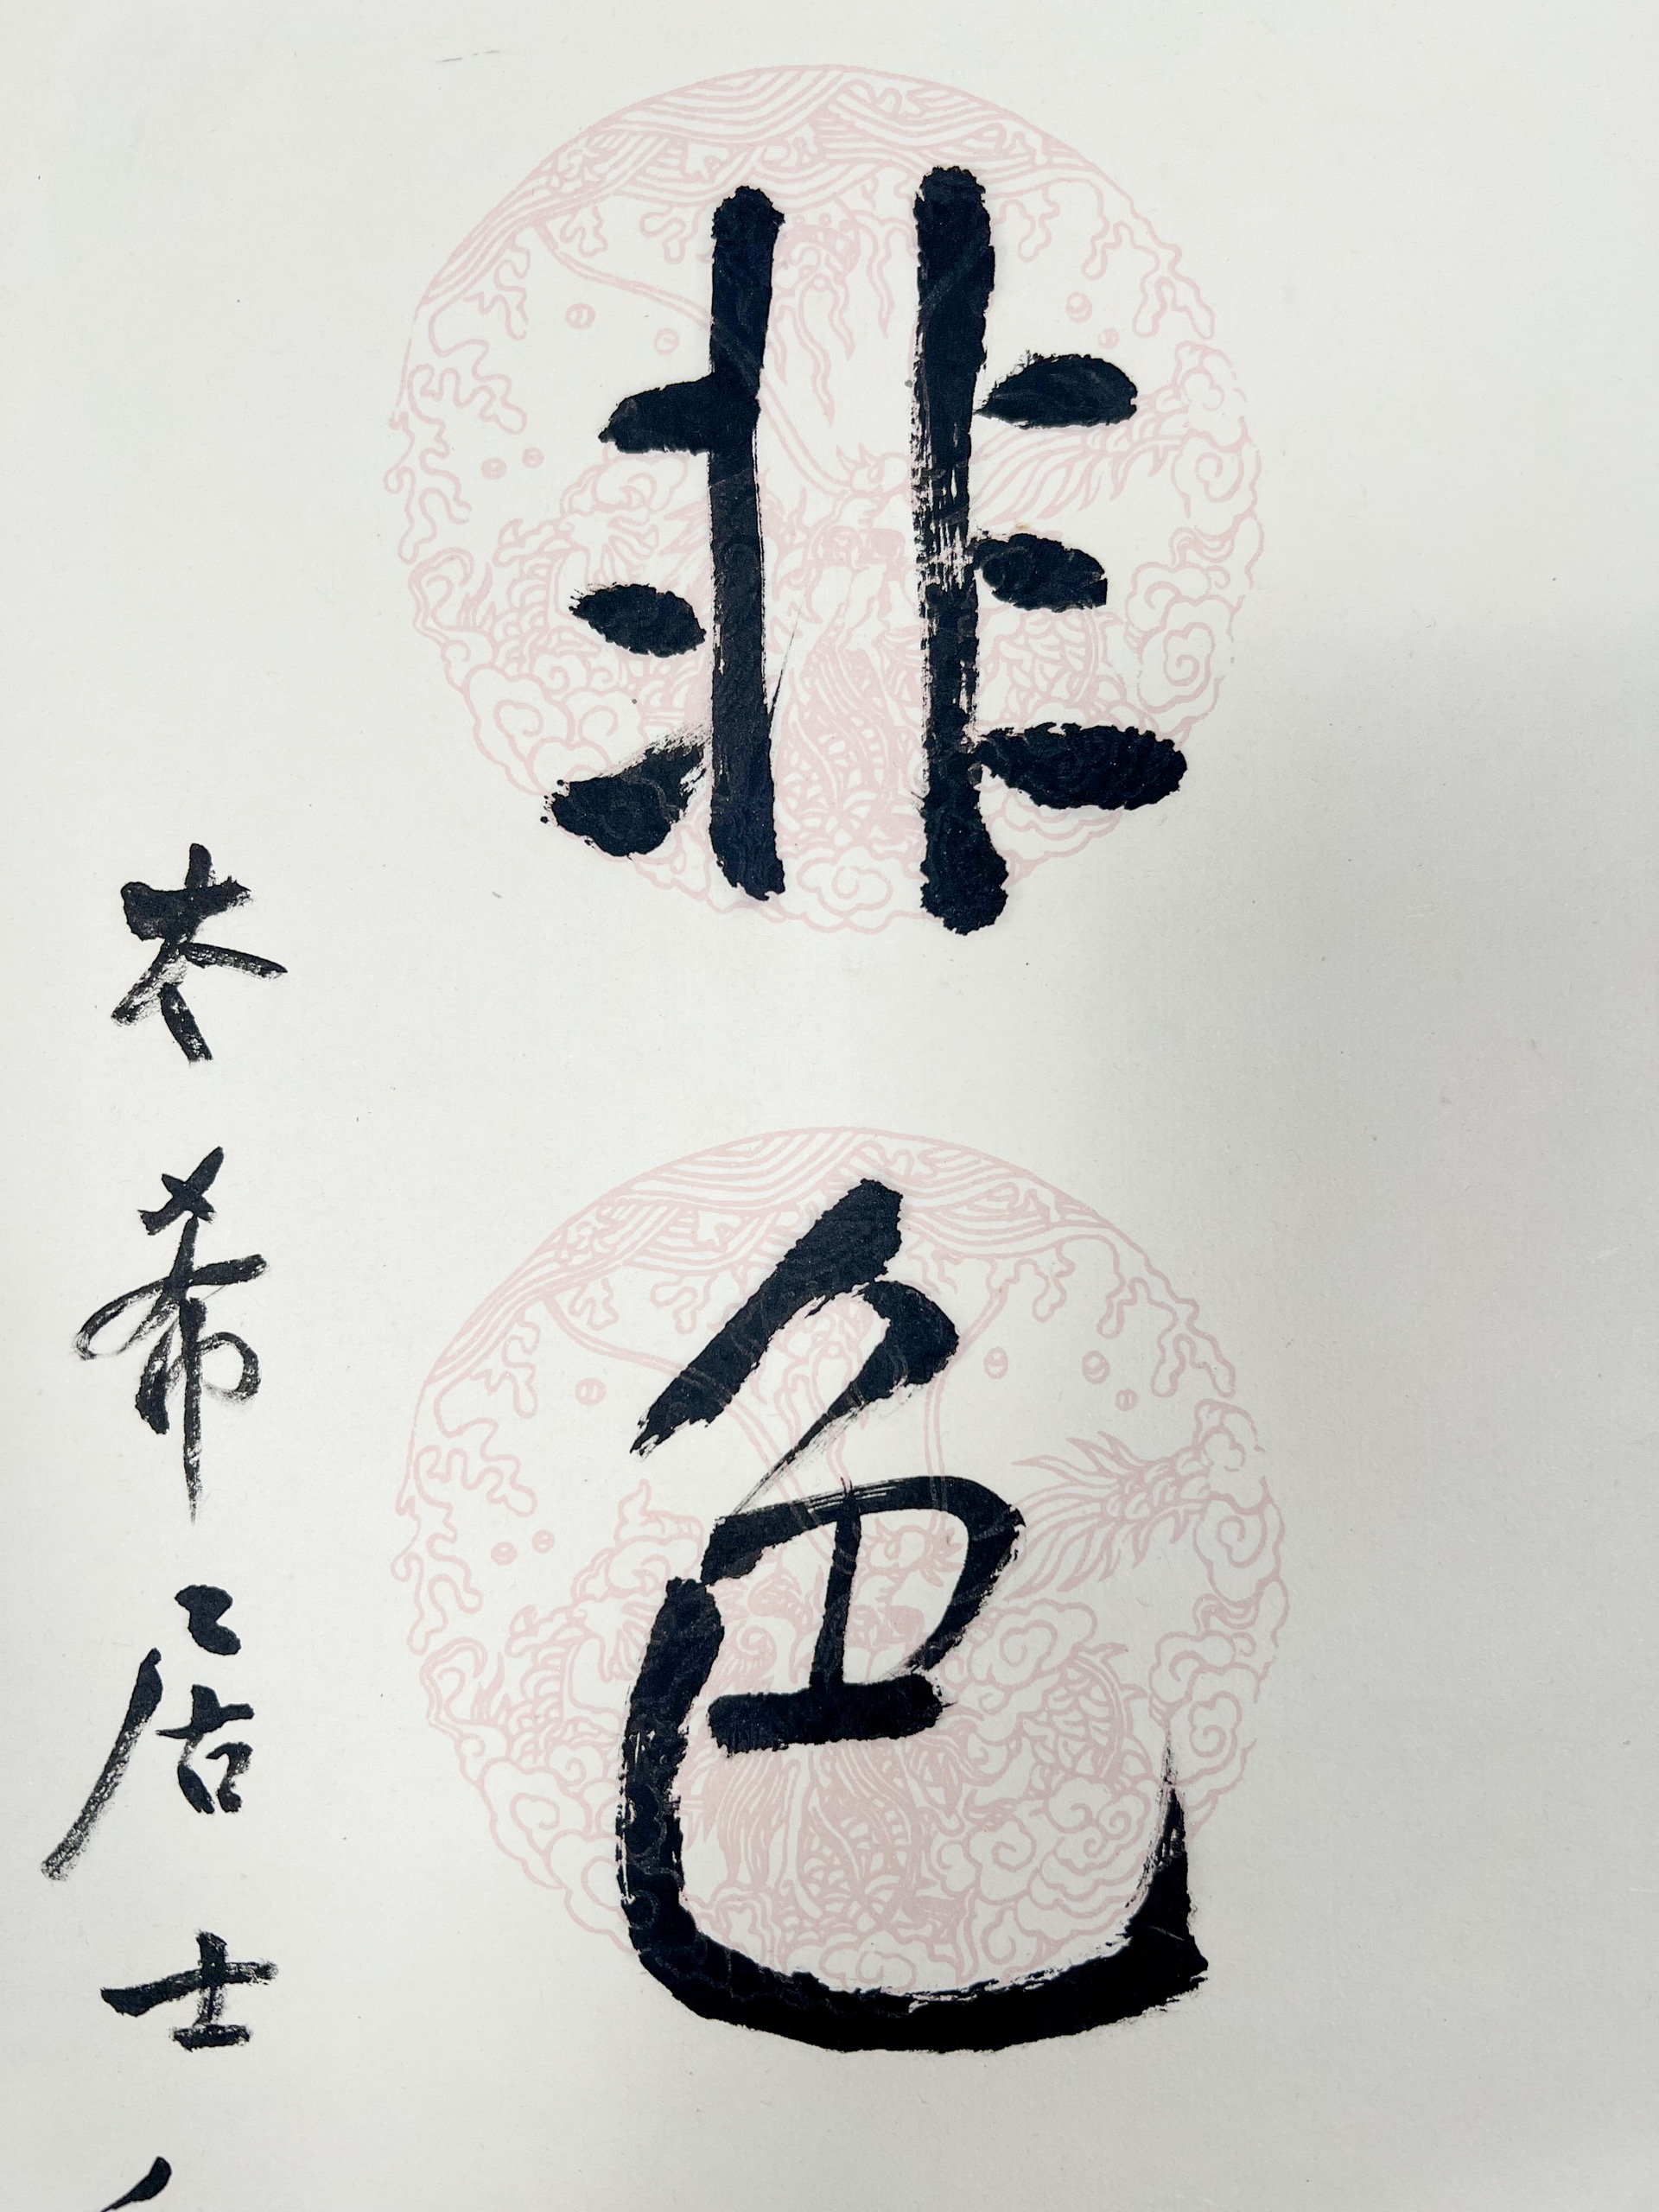 非色
木希居士